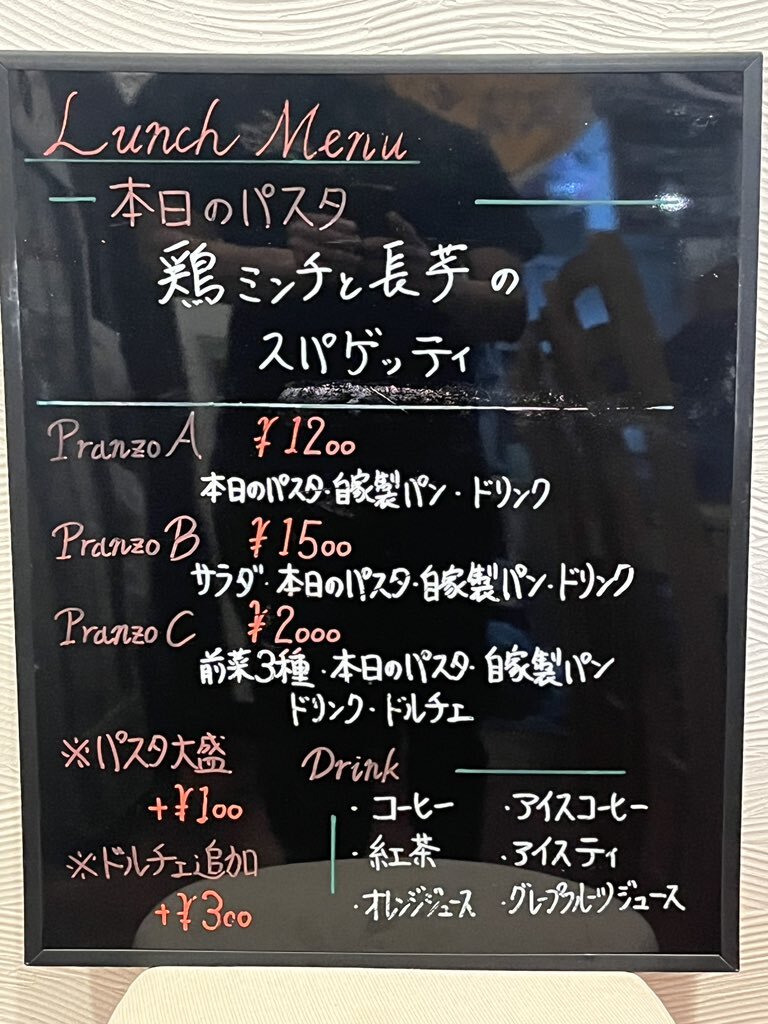 Lunch Menu
本日のパスタ
鶏ミンチと長芋の
スパゲッティ
Pranzo A ¥1200
本日のパスタ・自家製パン・ドリンク
Pranzo B ¥1500
サラダ・本日のパスタ・自家製パン・ドリンク
Pranzo C ¥2000
前菜3種・本日のパスタ・自家製パン
ドリンク・ドルチェ
※パスタ大盛
+¥100
※ドルチェ追加
+¥300
Drink
・コーヒー ・アイスコーヒー
・紅茶 ・アイスティ
・オレンジジュース ・グレープフルーツジュース